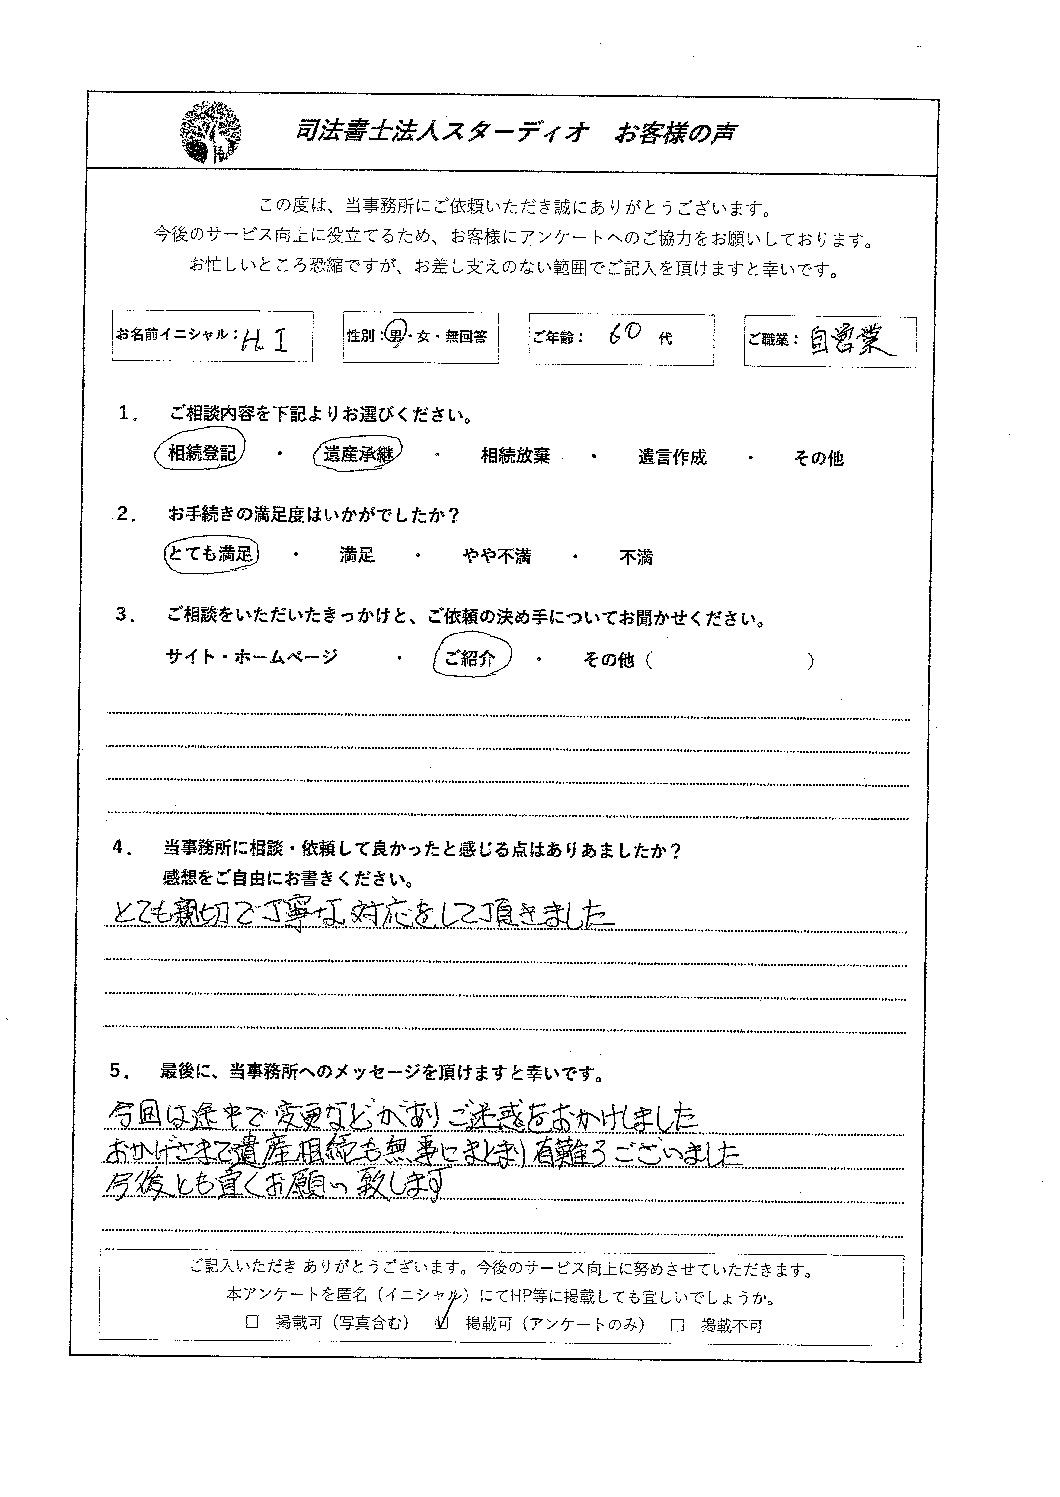 司法書士法人スターディオ お客様の声
この度は、当事務所にご依頼いただき誠にありがとうございます。
今後のサービス向上に役立てるため、お客様にアンケートへのご協力をお願いしております。
お忙しいところ恐縮ですが、お差し支えのない範囲でご記入を頂けますと幸いです。
お名前イニシャル：H.I 性別：男・女・無回答 ご年齢： 60 代 ご職業：自営業
1． ご相談内容を下記よりお選びください。
相続登記 ・ 遺産承継 ・ 相続放棄 ・ 遺言作成 ・ その他
2． お手続きの満足度はいかがでしたか？
とても満足 ・ 満足 ・ やや不満 ・ 不満
3． ご相談をいただいたきっかけと、ご依頼の決め手についてお聞かせください。
サイト・ホームページ ・ ご紹介 ・ その他（ ）
4． 当事務所に相談・依頼して良かったと感じる点はありあましたか？
感想をご自由にお書きください。
とても親切で丁寧な対応をして頂きました
5． 最後に、当事務所へのメッセージを頂けますと幸いです。
今回は途中で変更などがありご迷惑をおかけしました
おかげさまで遺産相続も無事にまとまり有難うございました
今後とも宜くお願い致します
ご記入いただき ありがとうございます。今後のサービス向上に努めさせていただきます。
本アンケートを匿名（イニシャル）にてHP等に掲載しても宜しいでしょうか。
□ 掲載可（写真含む） ☑ 掲載可（アンケートのみ） □ 掲載不可